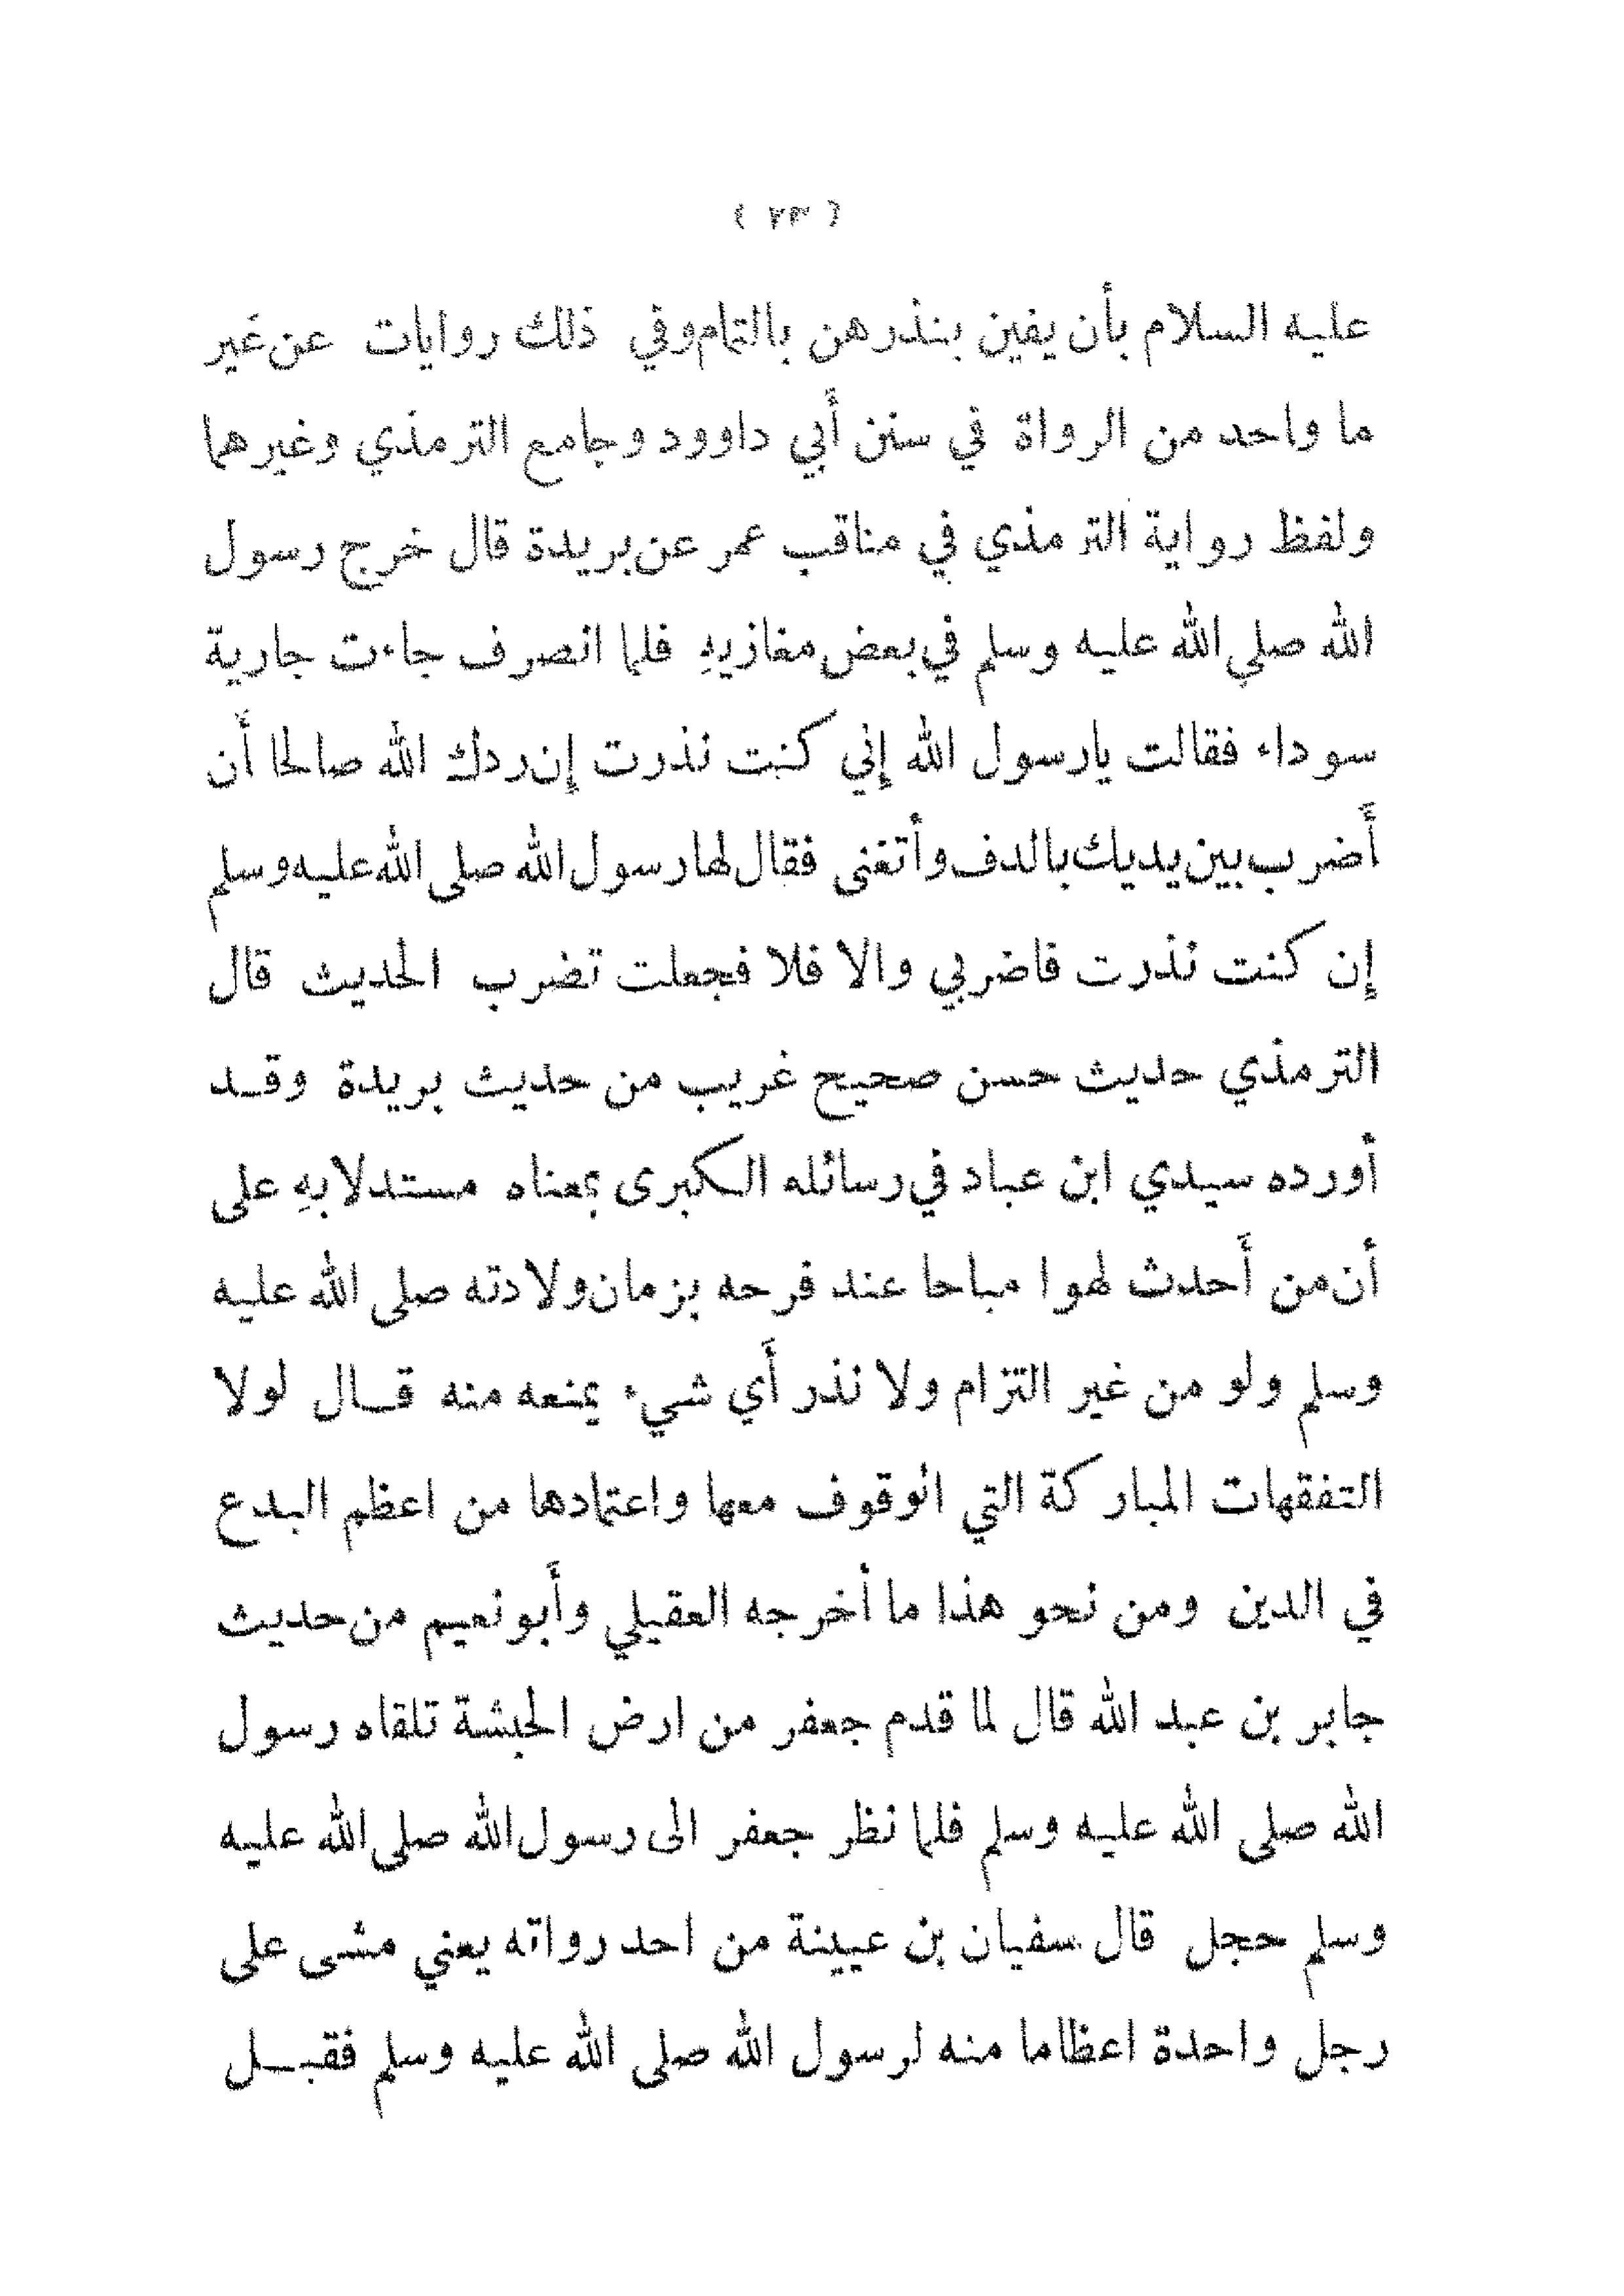 عليه السلام بأن يفين بنذرهن بالتمام وفي ذلك روايات عن غير
ما واحد من الرواة في سنن أبي داوود وجامع الترمذي وغيرهما
ولفظ رواية الترمذي في مناقب عمر عن بريدة قال خرج رسول
الله صلي الله عليه وسلم في بعض مغازيهِ فلما انصرف جاءت جارية
سوداء فقالت يارسول الله إني كنت نذرت إن ردك الله صالحا أن
أضرب بين يديك بالدف وأتغنى فقال لها رسول الله صلى الله عليه وسلم
إن كنت نذرت فاضربي والا فلا فجعلت تضرب الحديث قال
الترمذي حديث حسن صحيح غريب من حديث بريدة وقد
أورده سيدي ابن عباد في رسائله الكبرى بمعناه مستدلا بهِ على
أن من أحدث لهوا مباحا عند فرحه بزمان ولادته صلى الله عليه
وسلم ولو من غير التزام ولا نذر أي شيء يمنعه منه قال لولا
التفقهات المباركة التي الوقوف معها واعتمادها من اعظم البدع
في الدين ومن نحو هذا ما أخرجه العقيلي وأبو نعيم من حديث
جابر بن عبد الله قال لما قدم جعفر من ارض الحبشة تلقاه رسول
الله صلى الله عليه وسلم فلما نظر جعفر الى رسول الله صلى الله عليه
وسلم حجل قال سفيان بن عيينة من احد رواته يعني مشى على
رجل واحدة اعظاما منه لرسول الله صلى الله عليه وسلم فقبل